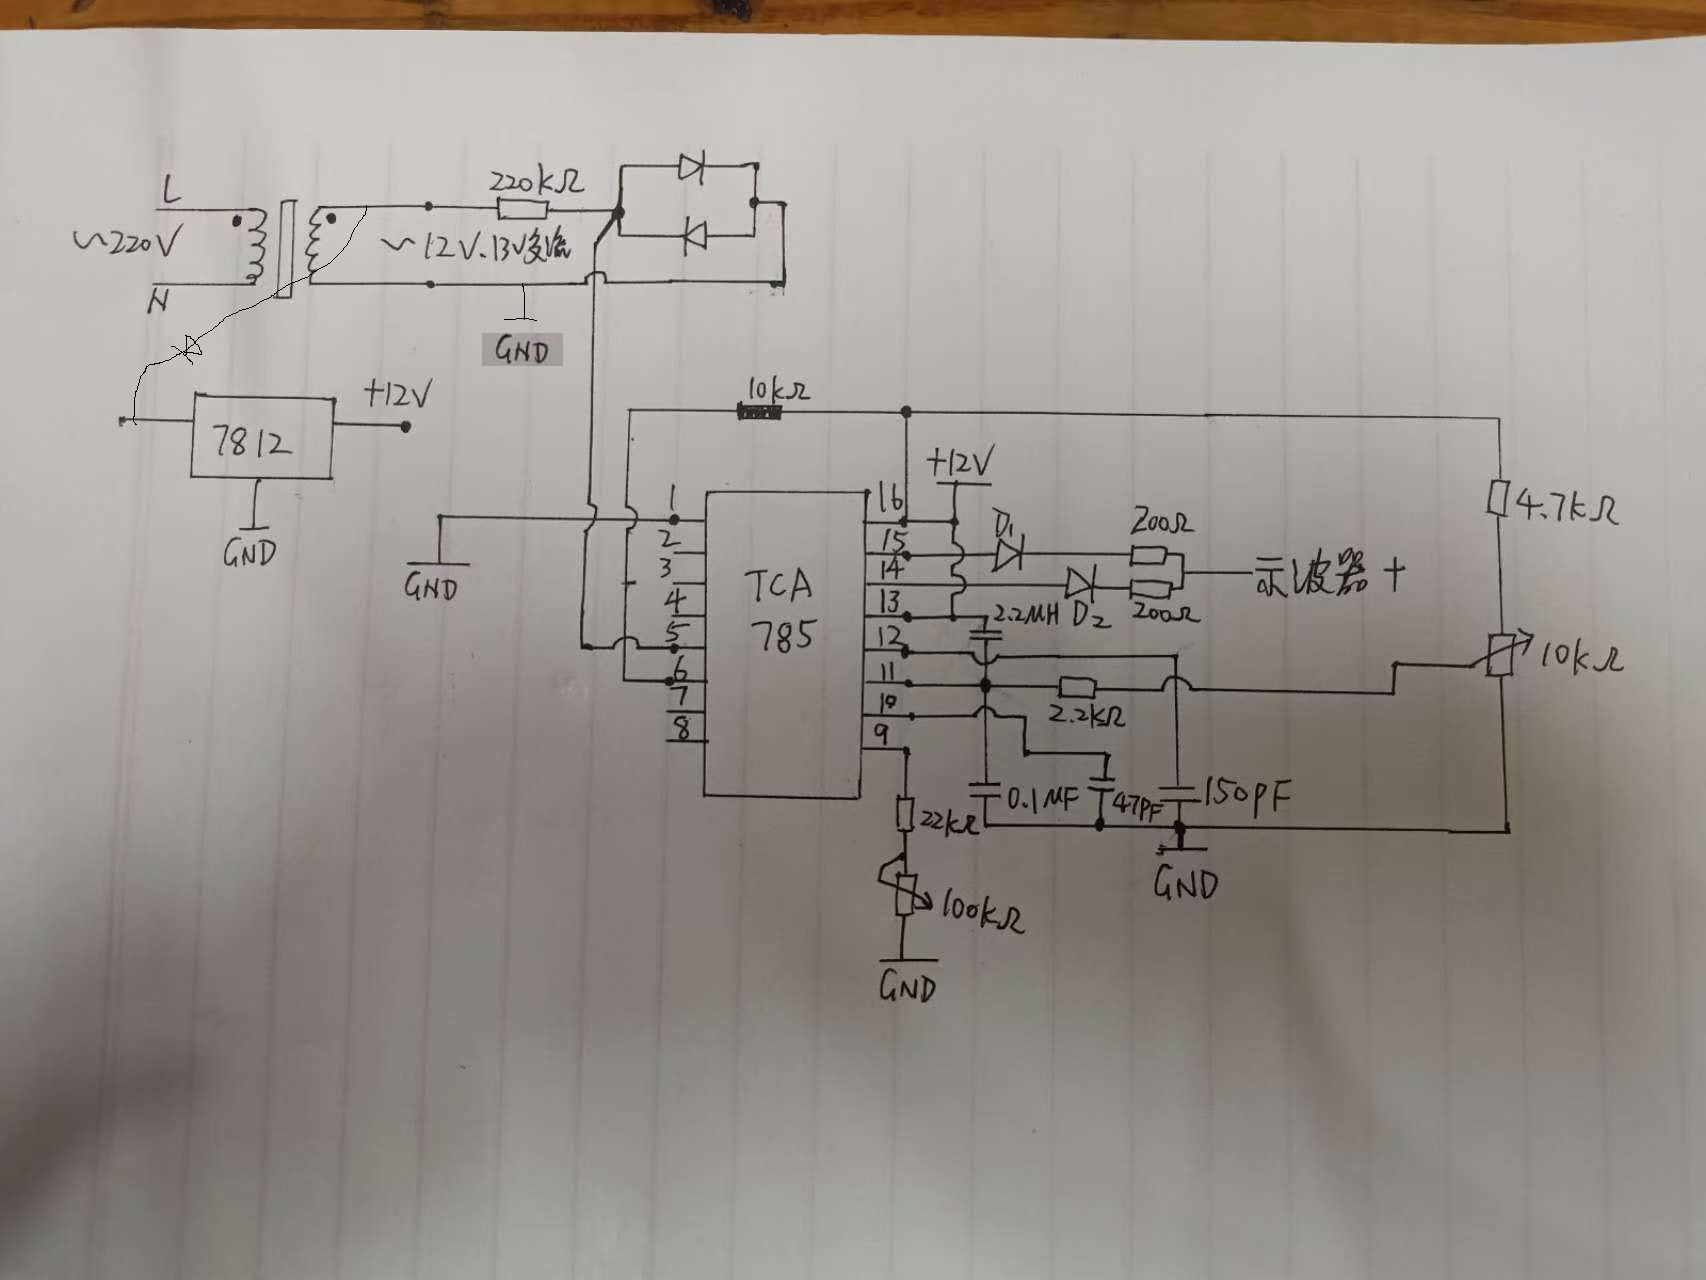 L
220kΩ
~220V
~12V.13V交流
N
GND
+12V
7812
GND
10kΩ
+12V
1
2
3
4
5
6
7
8
TCA
785
16
15
14
13
12
11
10
9
GND
D1
200Ω
4.7kΩ
示波器 +
D2
200Ω
2.2MH
10kΩ
2.2kΩ
0.1MF
47PF
150PF
22kΩ
GND
100kΩ
GND